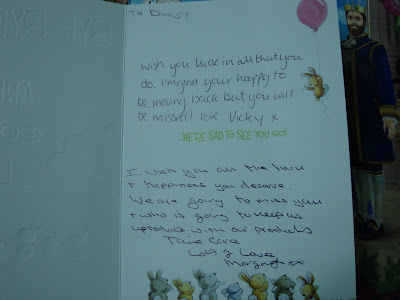 To Daisy
BYE BYE
wish you luck in all that you
do. I'm glad your happy to
be moving back but you will
be missed! love Vicky x
WE'RE SAD TO SEE YOU GO!
I wish you all the luck
+ happiness you deserve.
We are going to miss you
+ who is going to keep us
uptodate with our products
Take Care
Lots of Love
Margaret xx